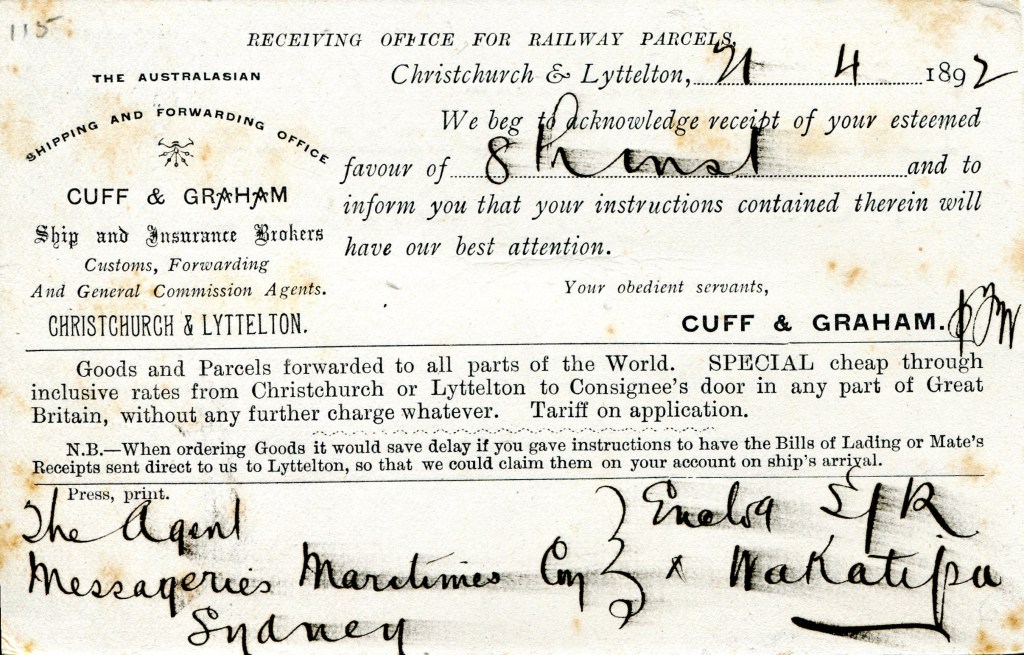 115
RECEIVING OFFICE FOR RAILWAY PARCELS.
Christchurch & Lyttelton, 21 4 1892
THE AUSTRALASIAN
SHIPPING AND FORWARDING OFFICE
CUFF & GRAHAM
Ship and Insurance Brokers
Customs, Forwarding
And General Commission Agents.
CHRISTCHURCH & LYTTELTON.
We beg to acknowledge receipt of your esteemed
favour of 8th inst and to
inform you that your instructions contained therein will
have our best attention.
Your obedient servants,
CUFF & GRAHAM.
Goods and Parcels forwarded to all parts of the World. SPECIAL cheap through
inclusive rates from Christchurch or Lyttelton to Consignee's door in any part of Great
Britain, without any further charge whatever. Tariff on application.
N.B.—When ordering Goods it would save delay if you gave instructions to have the Bills of Lading or Mate's
Receipts sent direct to us to Lyttelton, so that we could claim them on your account on ship's arrival.
Press, print.
The Agent
Messageries Maritimes Coy
Sydney
Wakatipu